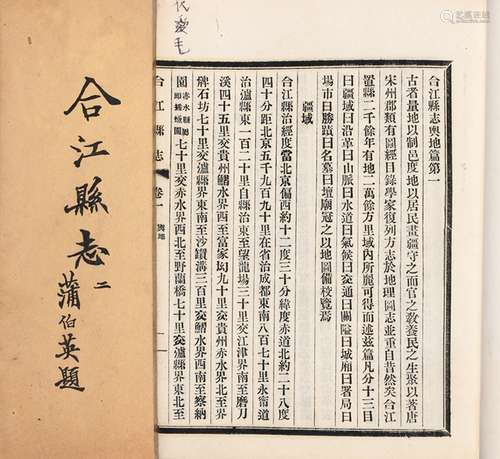 合江縣志輿地篇第一
古者量地以制邑度地以居民畫疆守之而官之教養民之生聚以著唐
宋州郡類有圖經目錄學家復列方志於地理圖志並重自昔然矣合江
置縣二千餘年有地二萬餘方里域內所麗可得而述玆篇凡分十三目
曰疆域曰沿革曰山脈曰水道曰氣候曰交通曰關隘曰城廂曰署局曰
場市曰勝蹟曰名墓曰壇廟冠之以地圖備校覽焉
疆域
合江縣治經度當北京偏西約十二度三十分緯度赤道北約二十八度
四十分距北京五千九百九十里在省治成都東南八百七十里永甯道
治瀘縣東一百二十里自縣治東至望龍場三十里交江津界南至磨刀
溪四十五里交貴州鰼水界西至富家坳九十里交貴州赤水界北至界
牌石坊七十里交瀘縣界東南至沙鑽溝三百里交鰼水界西南至察納
園赤水縣即園七十里交赤水界西北至野蘭橋七十里交瀘縣界東北至
合江縣志 卷一 輿地 一
毛
合江縣志 二
蒲伯英題